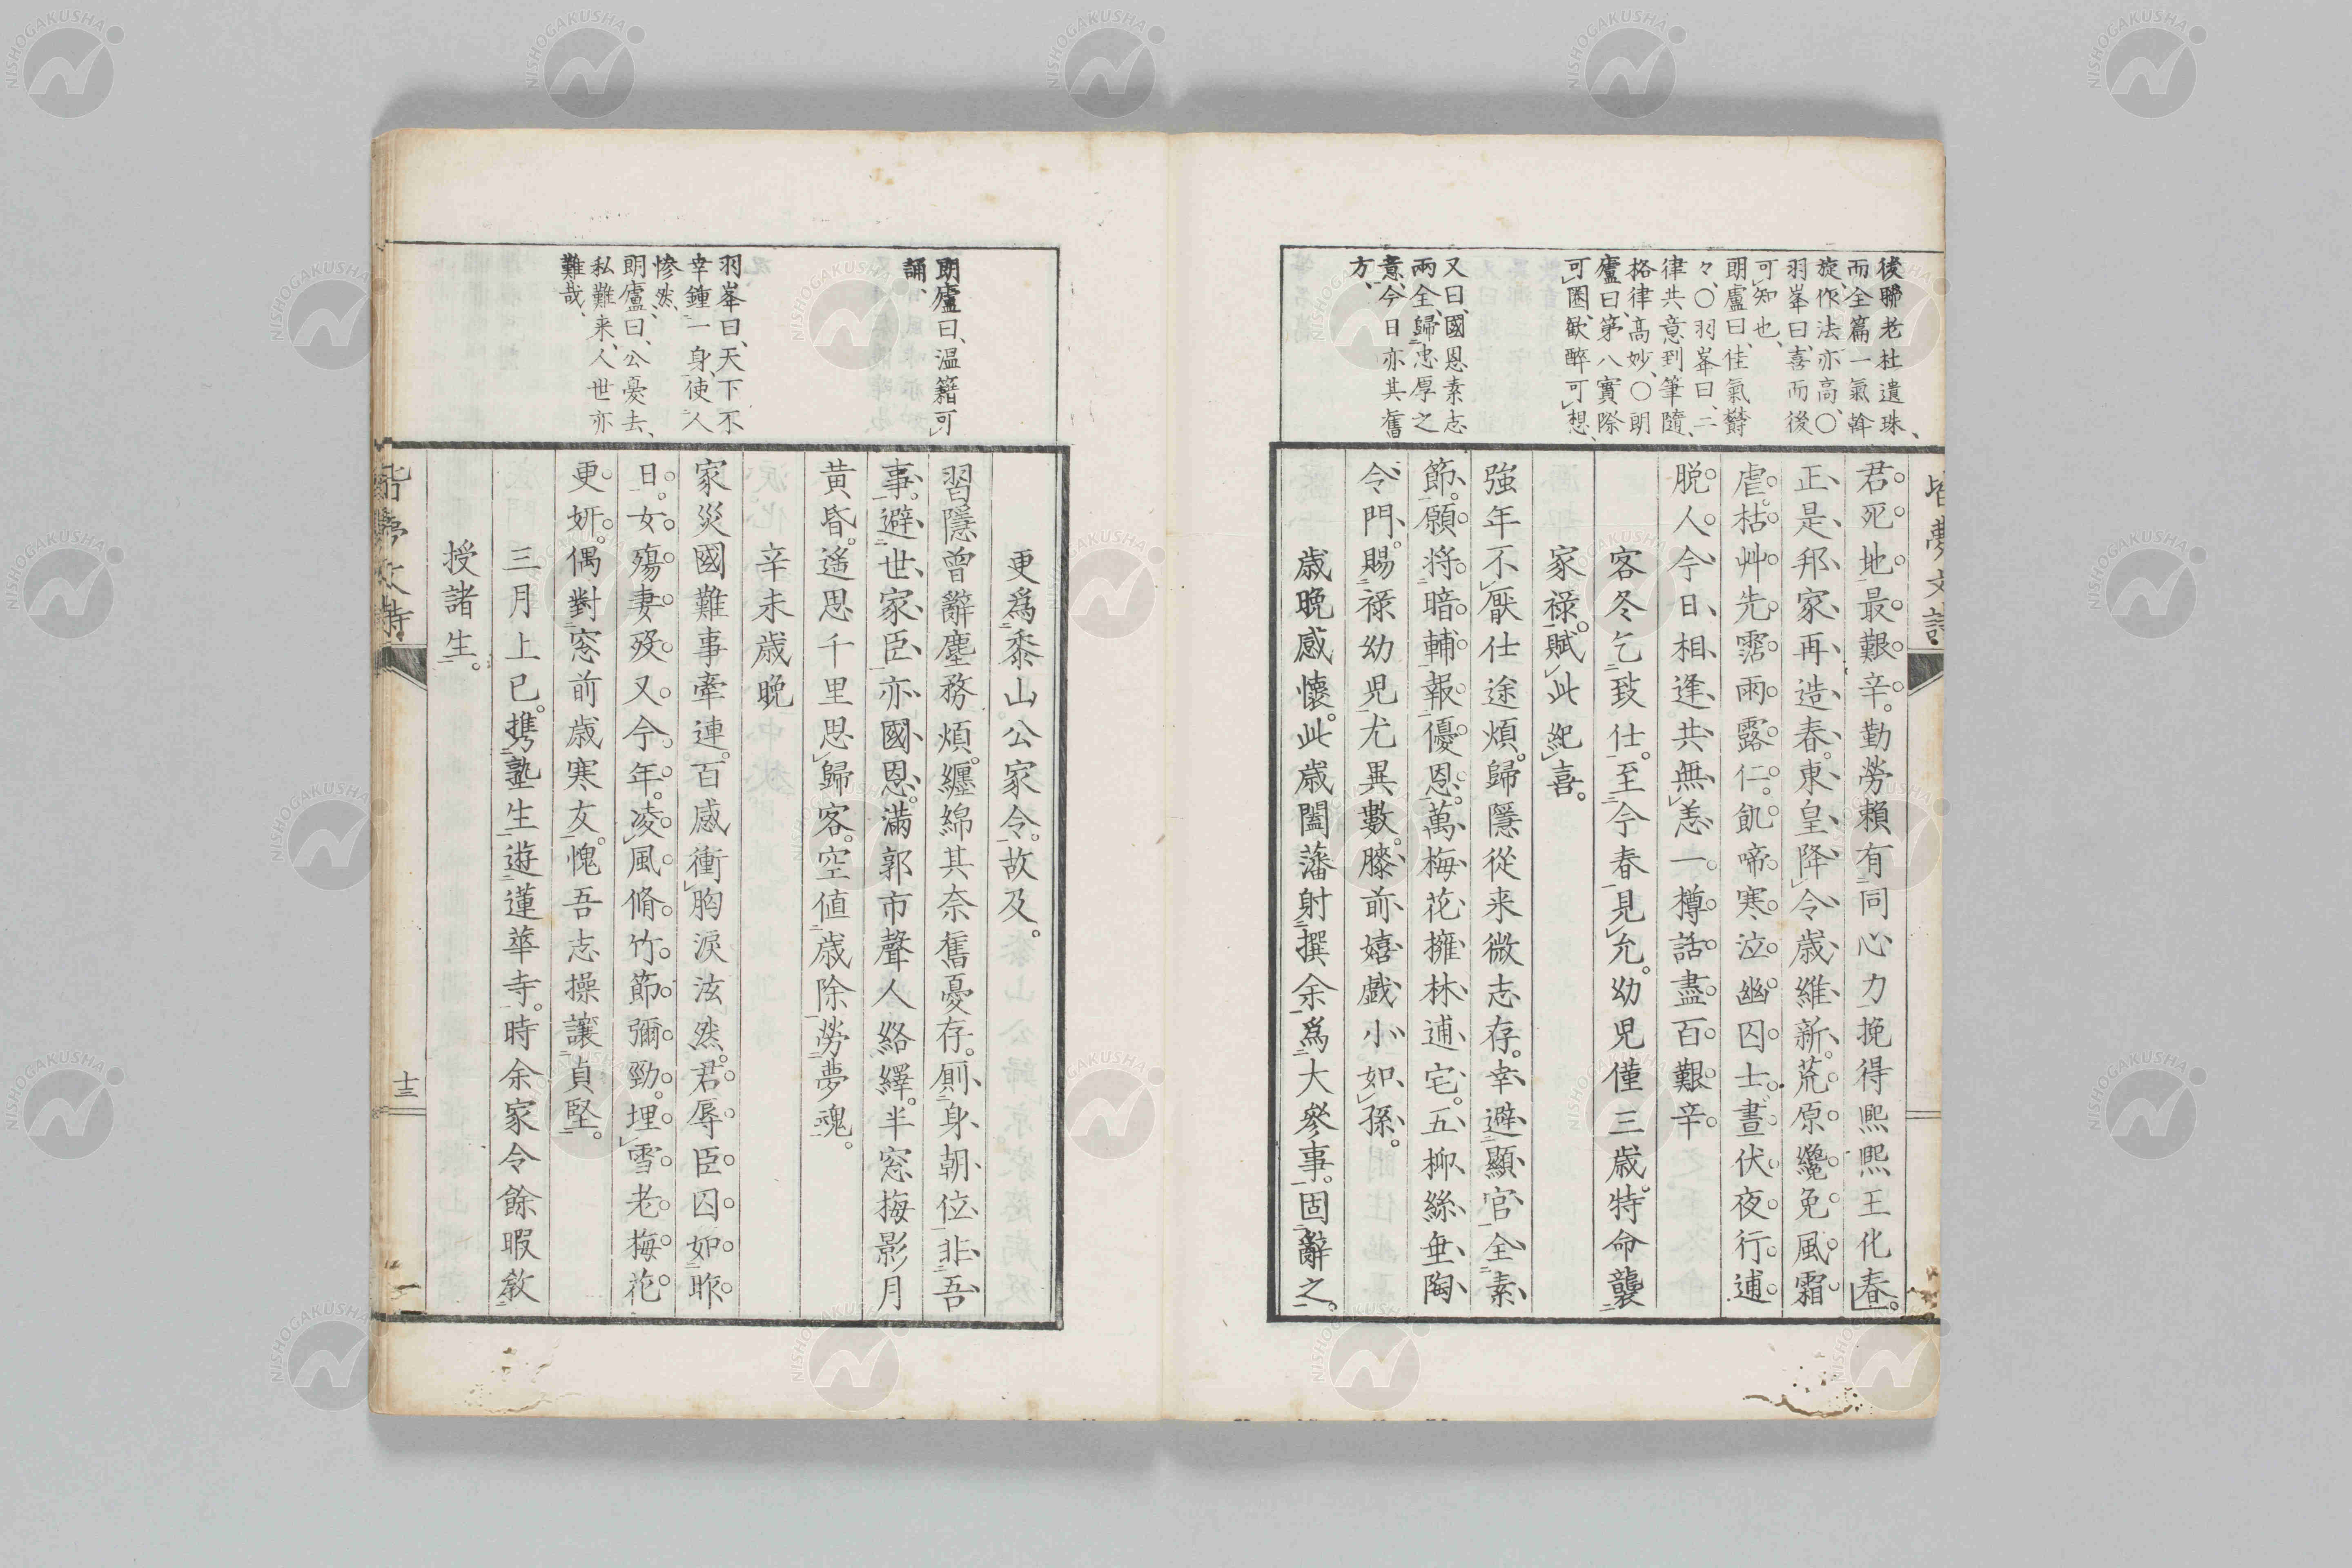 後聯老杜遺珠、
而全篇一氣斡
旋、作法亦高、〇
羽峯曰、喜而後
可知也、
朗廬曰、佳氣欝
々、〇羽峯曰、二
律共意到筆隨、
格律高妙、〇朗
廬曰、第八實際
可圏、歓醉可想、
又曰、國恩素志
兩全、歸忠厚之
意、今日亦其奮
方、
君死地最艱辛。勤勞賴有同心力挽得熈熈王化春。
正是邦家再造春。東皇降令歳維新。荒原纔免風霜
虐。枯艸先霑雨露仁。飢啼寒泣幽囚士。晝伏夜行逋
脱人。今日相逢共無恙一樽話盡百艱辛。
客冬乞致仕。至今春見允。幼児僅三歳。特命襲
家祿。賦此紀喜。
強年不厭仕途煩。歸隱從来微志存。幸避顯官全素
節。願將暗輔報優恩。萬梅花擁林逋宅。五柳絲垂陶
令門。賜祿幼児尤異數。膝前嬉戲小如孫。
歳晩感懷。此歳闔藩射撰余爲大參事。固辭之。
皆夢文詩
朗廬曰、温籍可
誦、
羽峯曰、天下不
幸鍾一身、使人
惨然、
朗廬曰、公憂去、
私難来、人世亦
難哉、
更爲黍山公家令。故及。
習隱曾辭塵務煩。纏綿其奈舊憂存。厠身朝位非吾
事。避世家臣亦國恩。滿郭市聲人絡繹。半窓梅影月
黄昏。遥思千里思歸客。空値歳除勞夢魂。
辛未歳晩
家災國難事牽連。百感衝胸涙泫然。君辱臣囚如昨
日。女殤妻歿又今年。凌風脩竹節彌勁。埋雪老梅花
更妍。偶對窓前歳寒友。愧吾志操讓貞堅。
三月上巳。携塾生遊蓮華寺。時余家令餘暇敎
授諸生。
皆夢文詩
十三
NISHOGAKUSHA